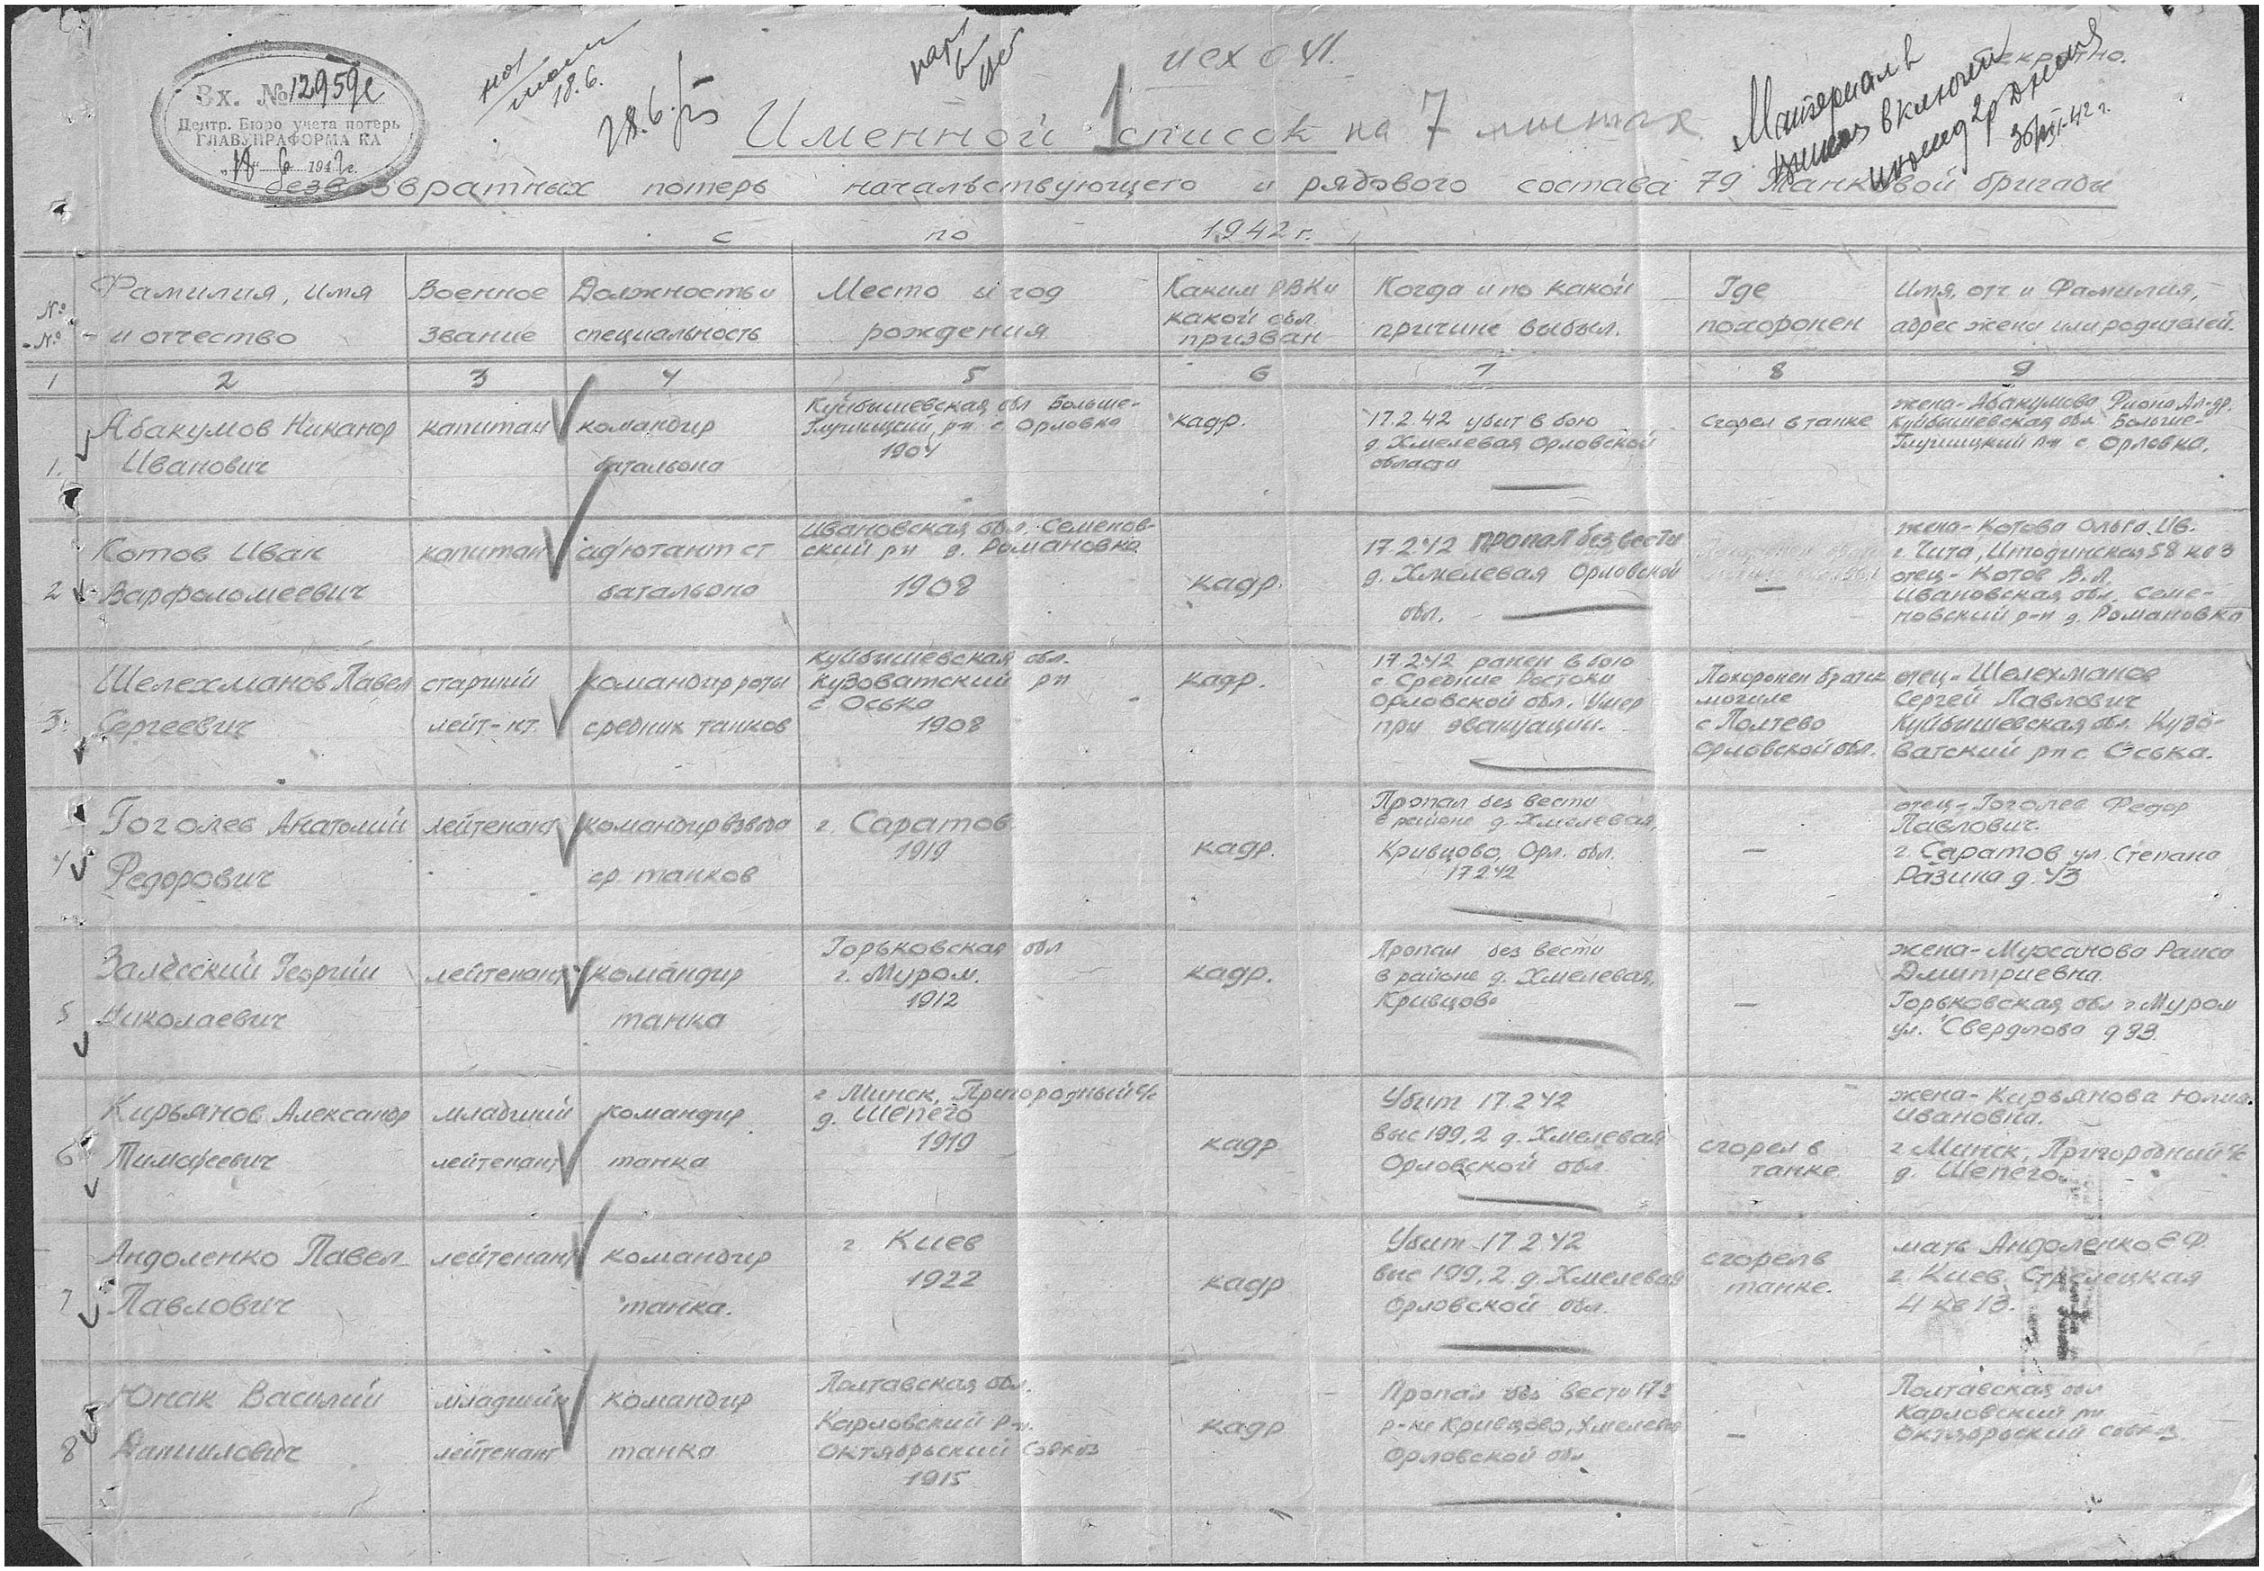 Вх. № 12959с
Центр. Бюро учета потерь
ГЛАВУПРАФОРМА КА
"18" 6 1942 г.
18.6.
28.6.
исх 041.
Секретно.
Именной список на 7 листах
1
безвозвратных потерь начальствующего и рядового состава 79 танковой бригады
с по 1942 г.
№ №
Фамилия, имя и отчество
Военное звание
Должность и специальность
Место и год рождения
Каким РВК и какой обл. призван
Когда и по какой причине выбыл.
Где похоронен
Имя, отч и Фамилия, адрес жены или родителей.
1 2 3 4 5 6 7 8 9
1.
Абакумов Никанор
Иванович
капитан
командир
батальона
Куйбышевская обл Больше-
Глушицкий р-н с Орловка
1904
кадр.
17.2.42 убит в бою
д. Хмелевая Орловской
области
сгорел в танке
жена - Абакумова
Куйбышевская обл Больше-
Глушицкий р-н с Орловка.
2
Котов Иван
Варфоломеевич
капитан
ад'ютант ст
батальона
Ивановская обл. Семенов-
ский р-н д. Романовка
1908
кадр.
17.2.42 пропал без вести
д. Хмелевая Орловской
обл.
—
жена - Котова Ольга Ив.
г. Чита, 58 кв 3
отец - Котов В.Л.
Ивановская обл. Семе-
новский р-н д. Романовка
3.
Шелехманов Павел
Сергеевич
старший
лейт-нт
командир роты
средних танков
Куйбышевская обл.
Кузоватский р-н
с Оська
1908
кадр.
17.2.42 ранен в бою
с. Средние Ростоки
Орловской обл. Умер
при эвакуации.
Похоронен братск
могиле
с Полтево
Орловской обл.
отец - Шелехманов
Сергей Павлович
Куйбышевская обл. Кузо-
ватский р-н с Оська.
4
Гоголев Анатолий
Федорович
лейтенант
командир взвода
ср. танков
г. Саратов
1919
кадр.
Пропал без вести
в районе д. Хмелевая,
Кривцово, Орл. обл.
17.2.42
—
отец - Гоголев Федор
Павлович.
г. Саратов ул. Степана
Разина д. 43
5
Залесский Георгий
Николаевич
лейтенант
командир
танка
Горьковская обл
г. Муром.
1912
кадр.
Пропал без вести
в районе д. Хмелевая,
Кривцово
—
жена - Муханова Раиса
Дмитриевна.
Горьковская обл г. Муром
ул. Свердлова д 33.
6
Кирьянов Александр
Тимофеевич
младший
лейтенант
командир
танка
г Минск, Пригородный с/с
д. Шепего
1919
кадр
Убит 17.2.42
выс 199,2 д. Хмелевая
Орловской обл
сгорел в
танке
жена - Кирьянова Юлия
Ивановна.
г Минск, Пригородный с/с
д. Шепего.
7
Андоленко Павел
Павлович
лейтенант
командир
танка.
г Киев
1922
кадр
Убит 17.2.42
выс 199,2 д. Хмелевая
Орловской обл.
сгорел в
танке.
мать Андоленко Е Ф.
г. Киев. Стрелецкая
4 кв 13.
8
Юнак Василий
Даниилович
младший
лейтенант
командир
танка
Полтавская обл.
Карловский р-н.
Октябрьский совхоз
1915
кадр
Пропал без вести 17.2
р-не Кривцово, Хмелевая
Орловской обл
—
Полтавская обл
Карловский р-н
Октябрьский совхоз.